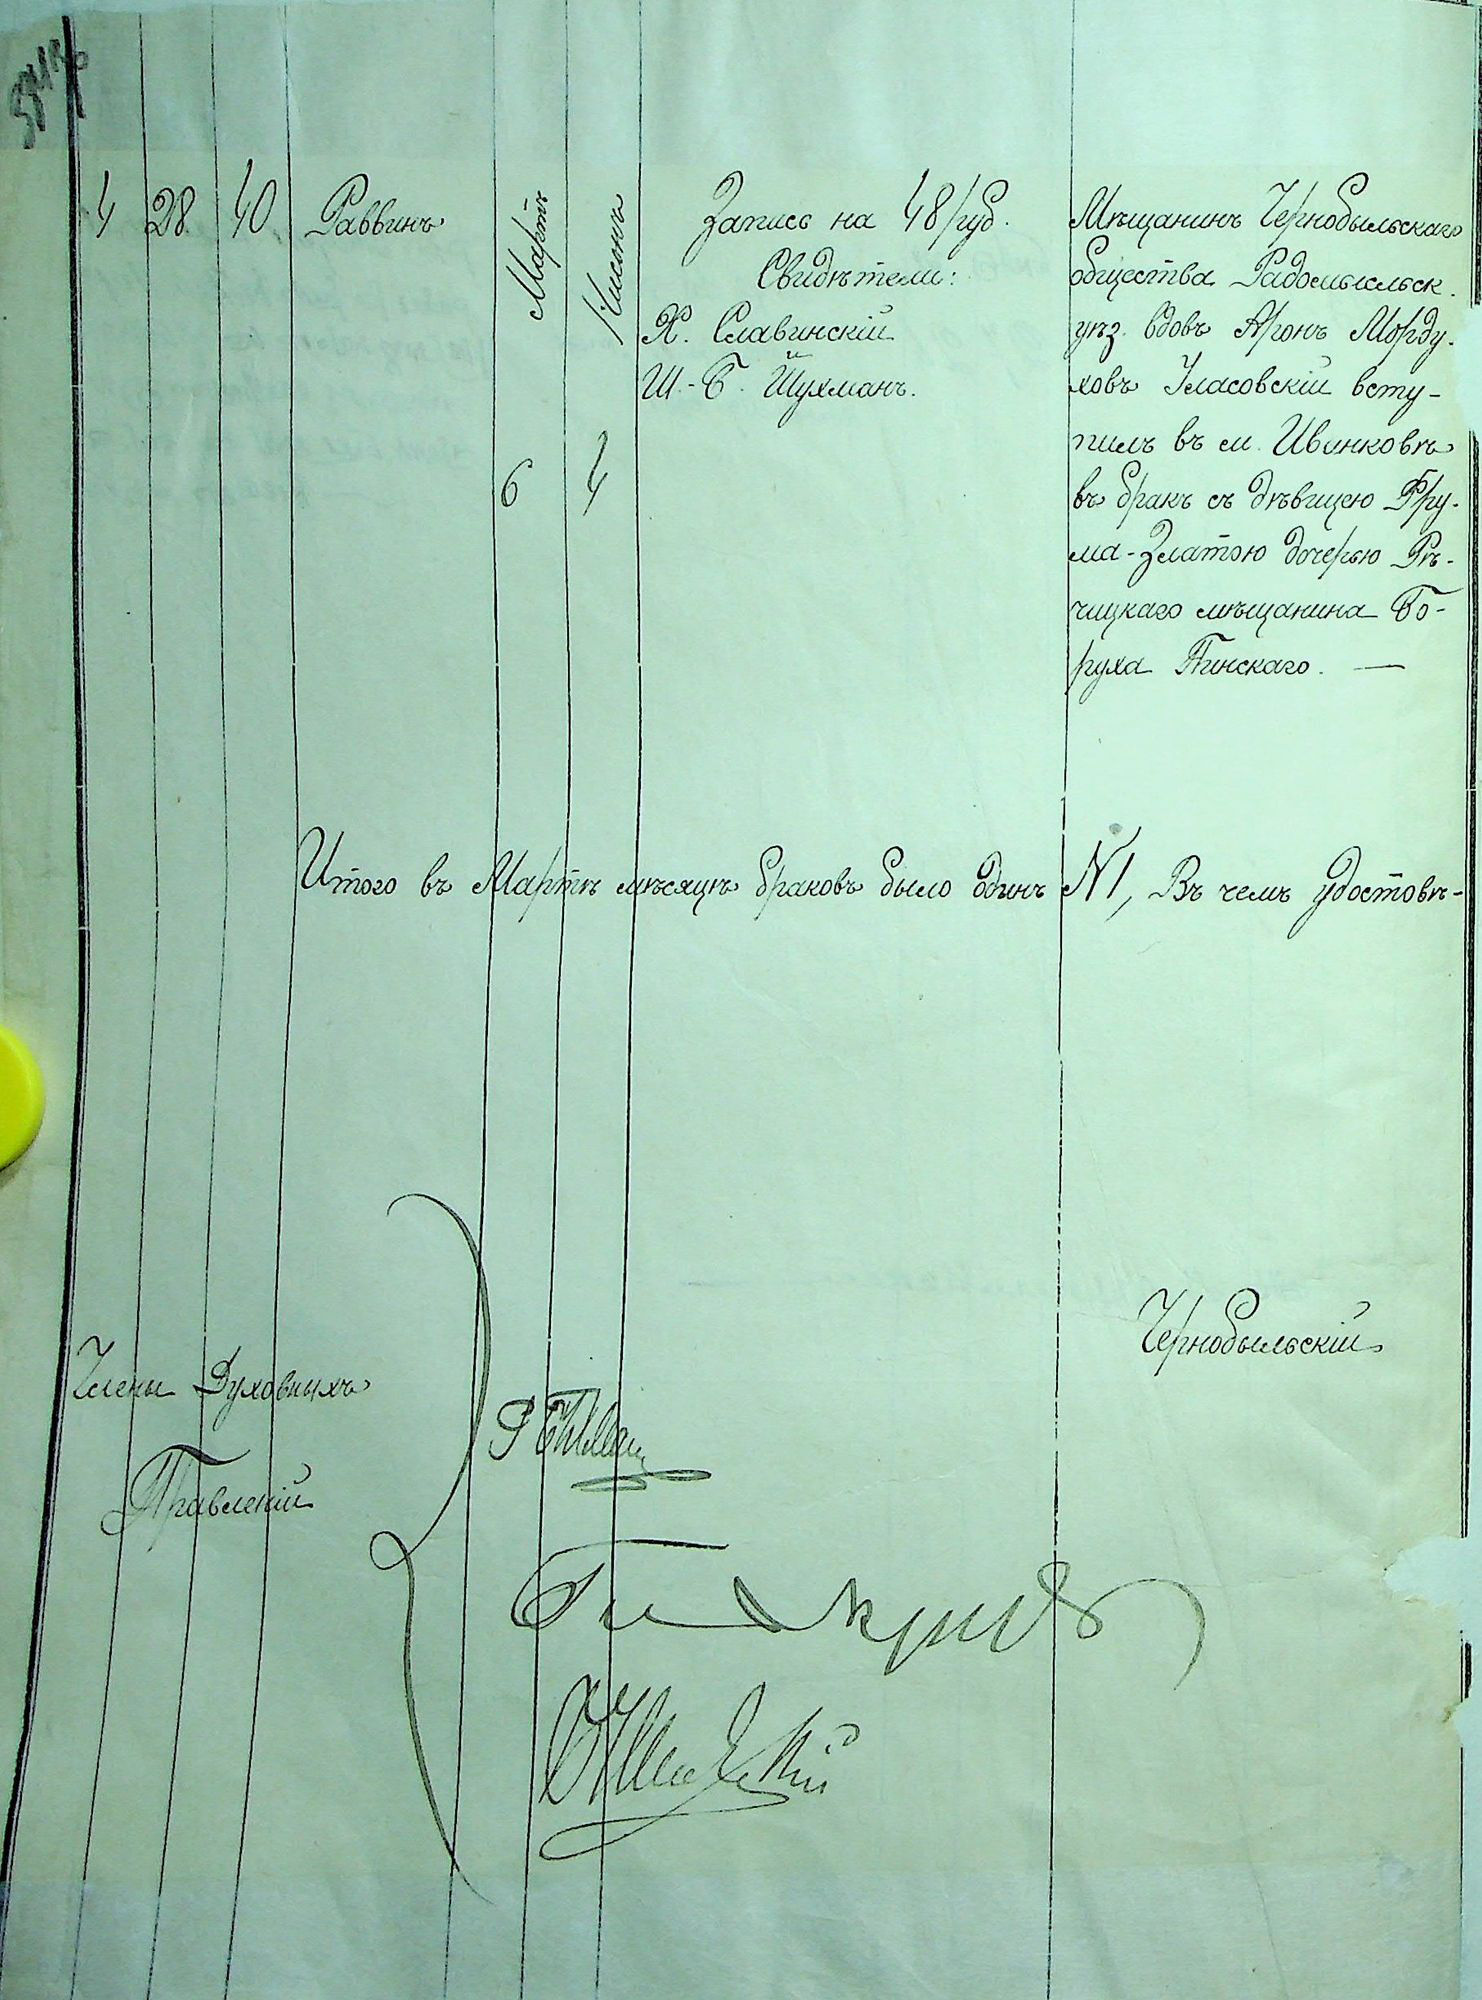 4 28 40 Раввинъ Мартъ 6 Нисонъ 4
Запись на 48 руб.
Свидѣтели:
Х. Славинскій
Ш.-Б. Шухманъ.
Мѣщанинъ Чернобыльскаго
общества Радомысльск.
уѣз. вдовъ Аронъ Морду-
ховъ Уласовскій всту-
пилъ въ м. Иванковѣ
въ бракъ съ дѣвицею Фру-
ма-Златою дочерью Рѣ-
чицкаго мѣщанина Бо-
руха Пинскаго. —
Итого въ Мартѣ мѣсяцѣ браковъ было одинъ №1, Въ чемъ удостовѣ-
Чернобыльскій
Члены Духовныхъ
Правленій